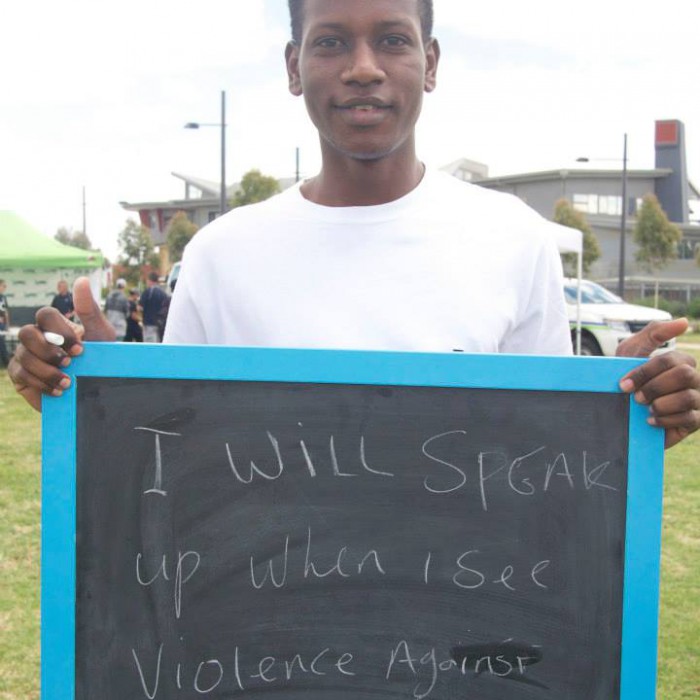 I WiLL SPEAK
up when i see
Violence Against